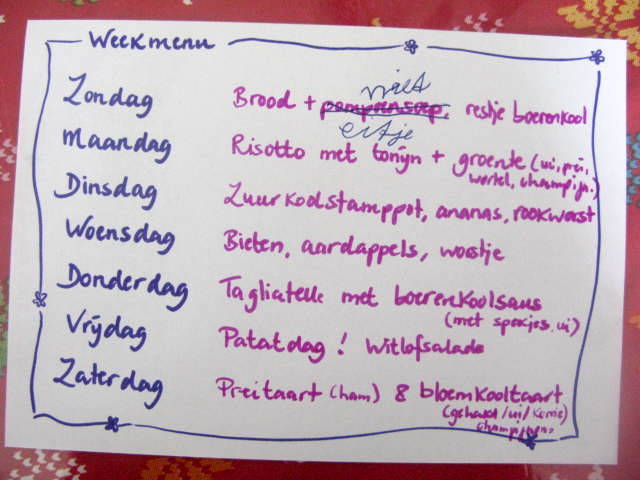 Weekmenu
niet
Zondag Brood + pompoensoep, restje boerenkool
eitje
Maandag Risotto met tonijn + groente (ui, prei,
wortel, champign.)
Dinsdag Zuurkoolstamppot, ananas, rookworst
Woensdag Bieten, aardappels, worstje
Donderdag Tagliatelle met boerenkoolsaus
(met spekjes, ui)
Vrijdag Patatdag! Witlofsalade
Zaterdag Preitaart (ham) & bloemkooltaart
(gehakt/ui/kerrie)
champignons